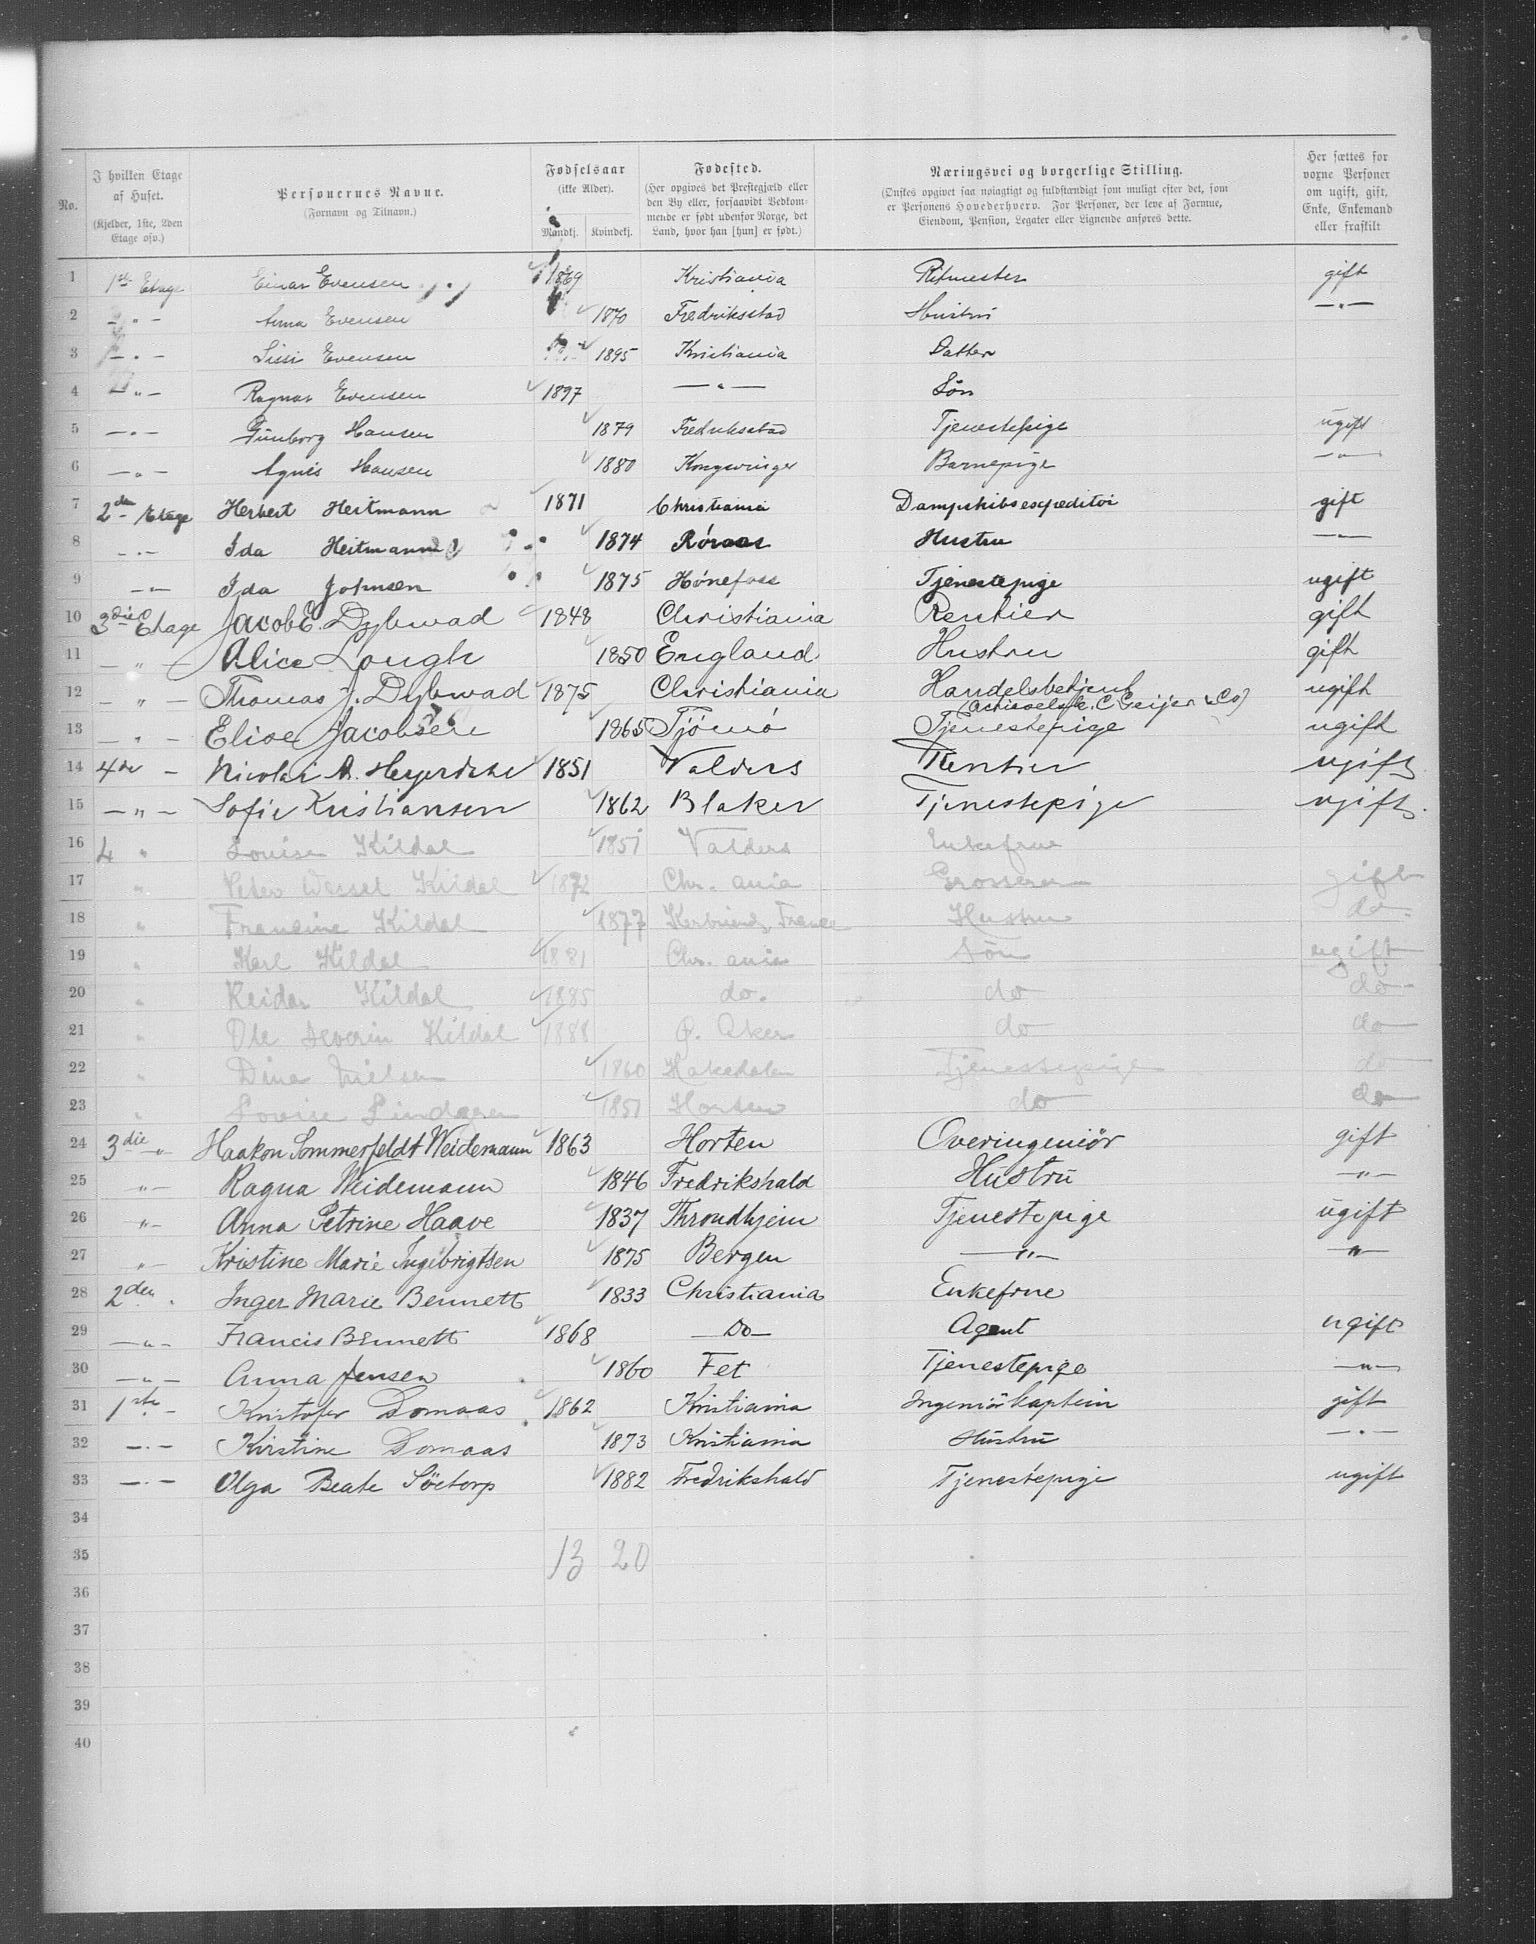 No. I hvilken Etage af Huset. (Kjelder, 1ste, 2den Etage osv.) Personernes Navne. (Fornavn og Tilnavn.) Fødselsaar (ikke Alder). Mandkj. Kvindekj. Fødested. (Her opgives det Prestegjæld eller den By eller, forsaavidt Vedkommende er født udenfor Norge, det Land, hvor han [hun] er født.) Næringsvei og borgerlige Stilling. (Ønskes opgivet saa nøiagtigt og fuldstændigt som muligt efter det, som er Personens Hovederhverv. For Personer, der leve af Formue, Eiendom, Pension, Legater eller Lignende anføres dette. Her sættes for voxne Personer om ugift, gift, Enke, Enkemand eller fraskilt
1 1ste Etage Einar Evensen 1869 Kristiania Ritmester gift
2 — " — Anna Evensen 1870 Fredriksstad Hustru — " —
3 — " — Sissi Evensen 1895 Kristiania Datter
4 — " — Ragnar Evensen 1897 — " — Søn
5 — " — Gunborg Hansen 1879 Fredriksstad Tjenestepige ugift
6 — " — Agnes Hansen 1880 Kongsvinger Barnepige — " —
7 2den Etage Herbert Heitmann 1871 Christiania Dampskibsexpeditør gift
8 — " — Ida Heitmann 1874 Røraas Hustru — " —
9 — " — Ida Johnsen 1875 Hønefoss Tjenestepige ugift
10 3die Etage Jacob E. Dybwad 1848 Christiania Rentier gift
11 — " — Alice Lough 1850 England Hustru gift
12 — " — Thomas J. Dybwad 1875 Christiania Handelsbetjent ugift
(Actieselsk. C Geijer & Co)
13 — " — Elise Jacobsen 1865 Tjømø Tjenestepige ugift
14 4de — Nicolai A. Heyerdahl 1851 Valders Rentier ugift
15 — " — Sofie Kristiansen 1862 Blaker Tjenestepige ugift
16 4 " Louise Kildal 1851 Valders Enkefrue
17 " Peter Wessel Kildal 1872 Chr. ania Grosserer gift
18 " Francine Kildal 1877 France Hustru do
19 " Karl Kildal 1881 Chr. ania Søn ugift
20 " Reidar Kildal 1885 do. do do
21 " Ole Severin Kildal 1888 Ø. Aker do do
22 " Dina Nielsen 1860 Hakedalen Tjenestepige do
23 " Lovise Lindgren 1851 Horten do do
24 3die " Haakon Sommerfeldt Weidemann 1863 Horten Overingeniör gift
25 — " — Ragna Weidemann 1846 Fredrikshald Hustru — " —
26 — " — Anna Petrine Haave 1837 Throndhjem Tjenestepige ugift
27 — " — Kristine Marie Ingebrigtsen 1875 Bergen — " — — " —
28 2den " Inger Marie Bennett 1833 Christiania Enkefrue
29 — " — Francis Bennett 1868 — Do — Agent ugift
30 — " — Anna Jensen 1860 Fet Tjenestepige — " —
31 1ste — Kristofer Domaas 1862 Kristiania Ingeniörkaptein gift
32 — " — Kirstine Domaas 1873 Kristiania Hustru — " —
33 — " — Olga Beate Söetorp 1882 Fredrikshald Tjenestepige ugift
34
35 13 20
36
37
38
39
40